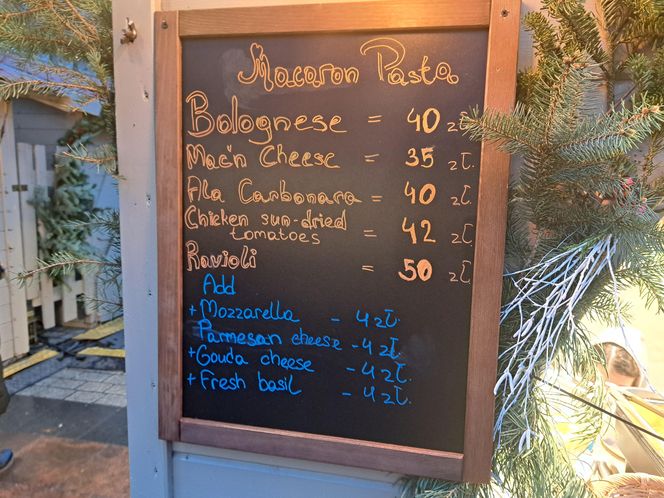 Macaron Pasta
Bolognese = 40 zł.
Mac'n Cheese = 35 zł.
Ala Carbonara = 40 zł.
Chicken sun-dried
tomatoes = 42 zł.
Ravioli = 50 zł.
Add
+ Mozzarella - 4 zł.
Parmesan cheese - 4 zł.
+ Gouda cheese - 4 zł.
+ Fresh basil - 4 zł.